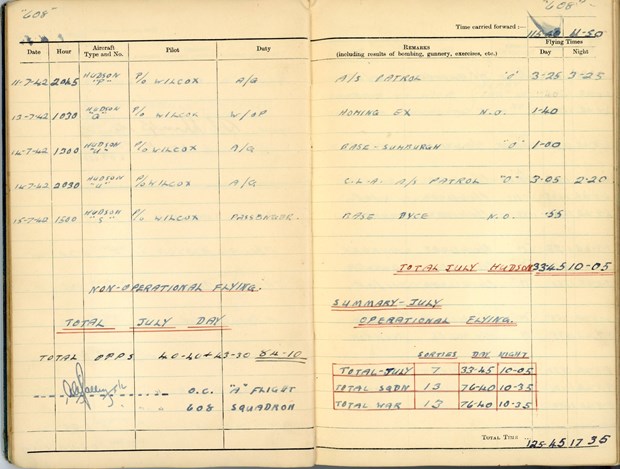 "608"
Date Hour Aircraft Type and No. Pilot Duty
11-7-42 2045 HUDSON "P" P/O WILCOX A/G
13-7-42 1030 HUDSON P/O WILCOX W/OP
14-7-42 1300 HUDSON P/O WILCOX A/G
14-7-42 2030 HUDSON P/O WILCOX A/G
15-7-42 1500 HUDSON "S" P/O WILCOX PASSENGER.
NON-OPERATIONAL FLYING.
TOTAL JULY DAY
TOTAL OPPS 40-40+43-30 84-10
O.C. "A" FLIGHT
608 SQUADRON
"608"
Time carried forward:— 4-50
REMARKS
(including results of bombing, gunnery, exercises, etc.)
Flying Times
Day Night
A/S PATROL "O" 3-25 3-25
HOMING EX N.O. 1-40
BASE-SUMBURGH "O" 1-00
C.L.A. A/S PATROL "O" 3-05 2-20
BASE DYCE N.O. .55
TOTAL JULY HUDSON 33-45 10-05
SUMMARY-JULY
OPERATIONAL FLYING.
SORTIES DAY NIGHT
TOTAL-JULY 7 33-45 10-05
TOTAL SQDN 13 76-40 10-35
TOTAL WAR 13 76-40 10-35
TOTAL TIME ... 125-45 17 35